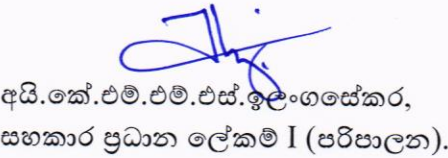 අයි.කේ.එම්.එම්.එස්.ඉලංගසේකර,
සහකාර ප්‍රධාන ලේකම් I (පරිපාලන).